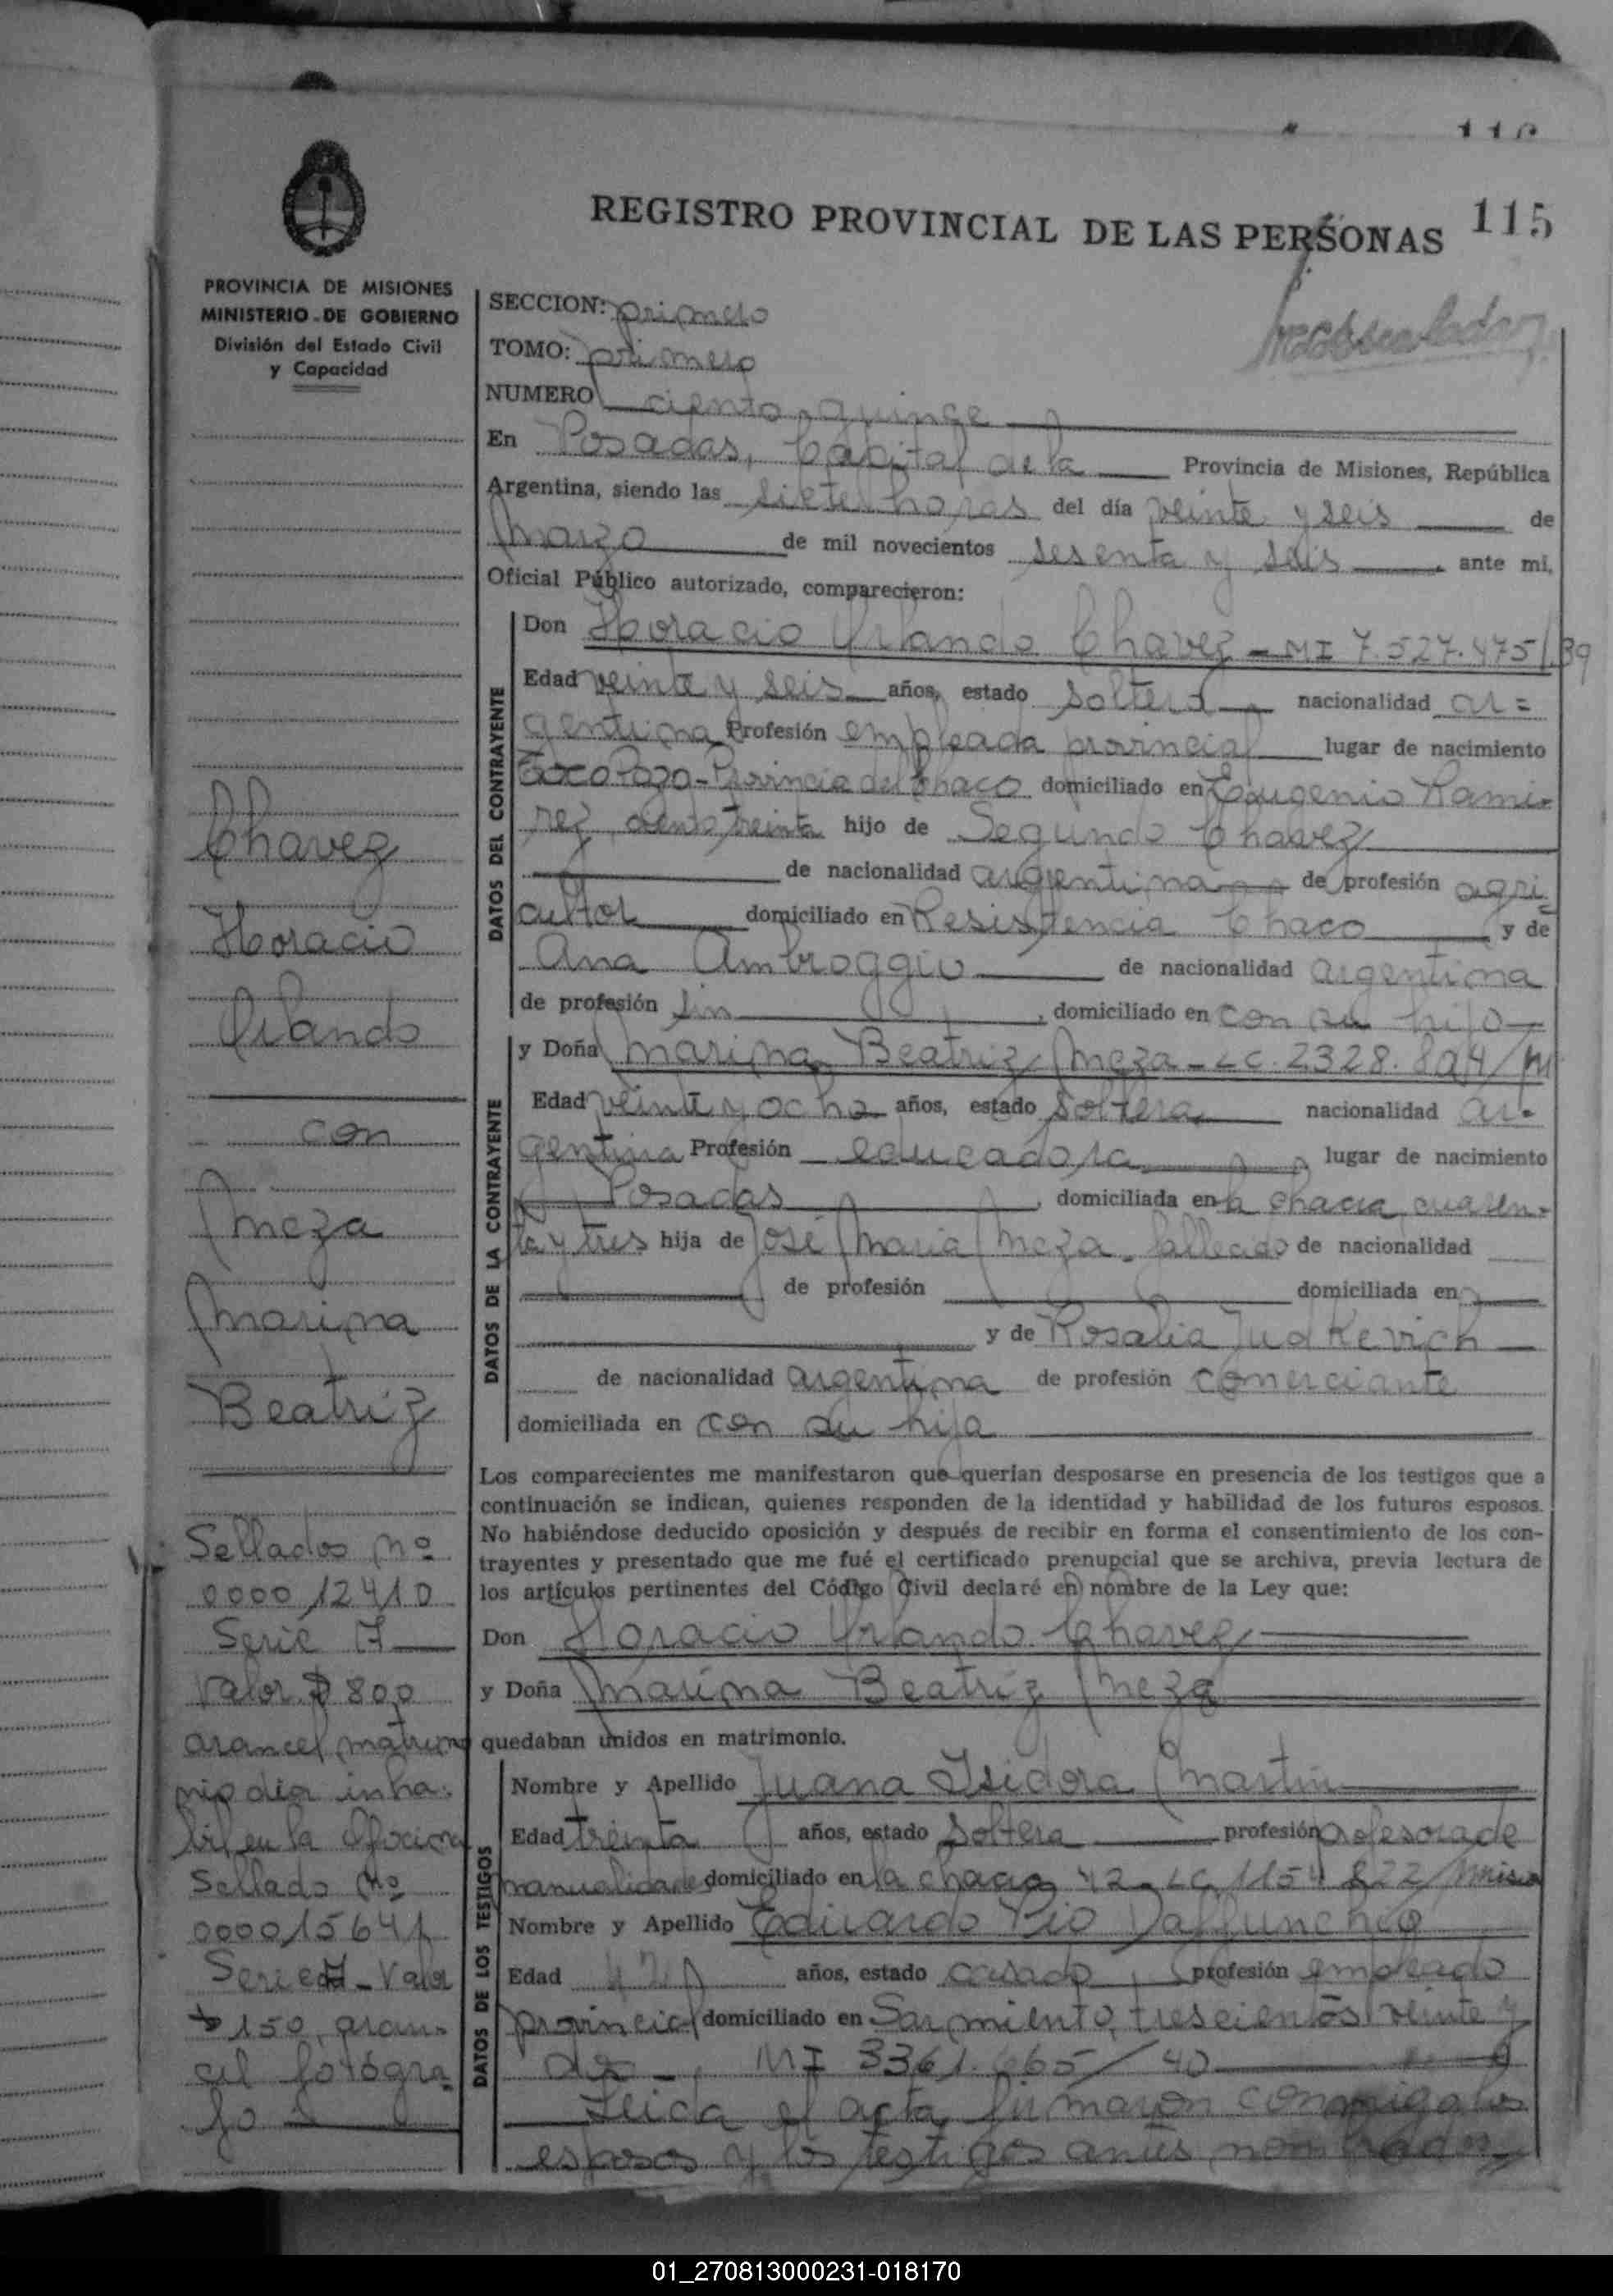 115
REGISTRO PROVINCIAL DE LAS PERSONAS
PROVINCIA DE MISIONES
MINISTERIO DE GOBIERNO
División del Estado Civil
y Capacidad
SECCION: primero
TOMO: primero
NUMERO ciento quince
En Posadas, Capital de la Provincia de Misiones, República
Argentina, siendo las siete horas del día veinte y seis de
Marzo de mil novecientos sesenta y seis ante mi,
Oficial Público autorizado, comparecieron:
DATOS DEL CONTRAYENTE
Don Horacio Orlando Chavez - MI 7.527.475/39
Edad veinte y seis años, estado soltero nacionalidad ar=
gentina Profesión empleado provincial lugar de nacimiento
Taco Pozo - Provincia del Chaco domiciliado en Eugenio Rami-
rez ciento treinta hijo de Segundo Chavez
de nacionalidad argentina de profesión agri=
cultor domiciliado en Resistencia Chaco y de
Ana Ambroggio de nacionalidad argentina
de profesión sin , domiciliado en con su hijo
DATOS DE LA CONTRAYENTE
y Doña Marina Beatriz Meza - LC. 2328.894/M
Edad veinte y ocho años, estado soltera nacionalidad ar-
gentina Profesión educadora lugar de nacimiento
Posadas , domiciliada en la chacra cuaren-
ta y tres hija de José Maria Meza - fallecido de nacionalidad
de profesión domiciliada en
y de Rosalia Judkevich
de nacionalidad argentina de profesión comerciante
domiciliada en con su hija
Los comparecientes me manifestaron que querían desposarse en presencia de los testigos que a
continuación se indican, quienes responden de la identidad y habilidad de los futuros esposos.
No habiéndose deducido oposición y después de recibir en forma el consentimiento de los con-
trayentes y presentado que me fué el certificado prenupcial que se archiva, previa lectura de
los artículos pertinentes del Código Civil declaré en nombre de la Ley que:
Don Horacio Orlando Chavez
y Doña Marina Beatriz Meza
quedaban unidos en matrimonio.
DATOS DE LOS TESTIGOS
Nombre y Apellido Juana Isidora Martin
Edad treinta años, estado soltera profesión profesora de
manualidades domiciliado en la chacra 42 - LC 1154 822/Mnes
Nombre y Apellido Eduardo Pio
Edad 42 años, estado casado, profesión empleado
provincial domiciliado en Sarmiento, trescientos veinte y
dos - MI 3361.665/40
Leida el acta firmaron conmigo los
esposos y los testigos antes nombrados
Chavez
Horacio
Orlando
con
Meza
Marina
Beatriz
Sellados Nº
0000 12410
Serie A
Valor $ 800
arancel matrimo
nio dia inha-
bil en la oficina
Sellado Nº
000015641
Serie A - Valor
$ 150, aran-
cel fotógra
fo
01_270813000231-018170